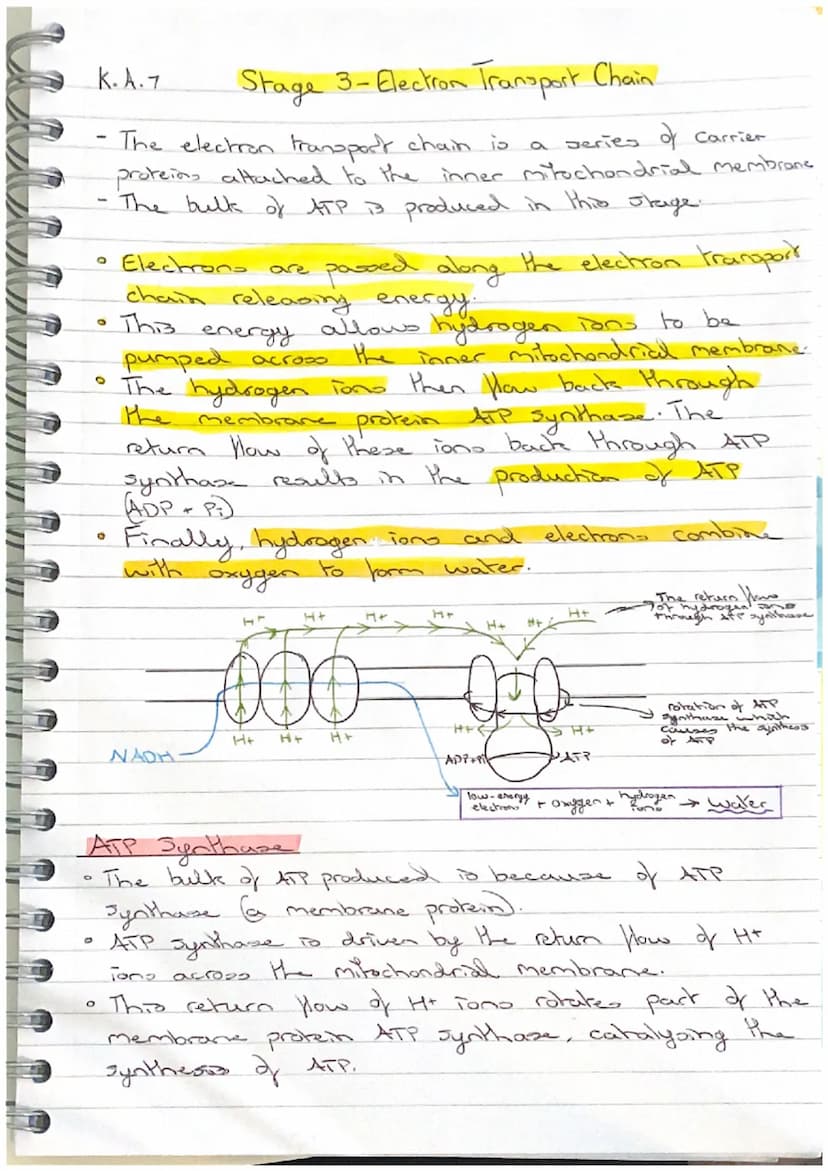 K.A.7 Stage 3 - Electron Transport Chain
- The electron transport chain is a series of carrier
proteins attached to the inner mitochondrial membrane
- The bulk of ATP is produced in this stage.
• Electrons are passed along the electron transport
chain releasing energy.
• This energy allows hydrogen ions to be
pumped across the inner mitochondrial membrane.
• The hydrogen ions then flow back through
the membrane protein ATP synthase. The
return flow of these ions back through ATP
synthase results in the production of ATP
(ADP + Pi)
• Finally, hydrogen ions and electrons combine
with oxygen to form water.
The return flow
of hydrogen ions
through ATP synthase
H+ H+ H+ H+ H+ H+ H+
rotation of ATP
synthase which
causes the synthesis
of ATP
H+ H+ H+ H+ H+
NADH
ADP+Pi ATP
low-energy electrons + oxygen + hydrogen ions → water
ATP Synthase
• The bulk of ATP produced is because of ATP
synthase (a membrane protein).
• ATP synthase is driven by the return flow of H+
ions across the mitochondrial membrane.
• This return flow of H+ ions rotates part of the
membrane protein ATP synthase, catalysing the
synthesis of ATP.